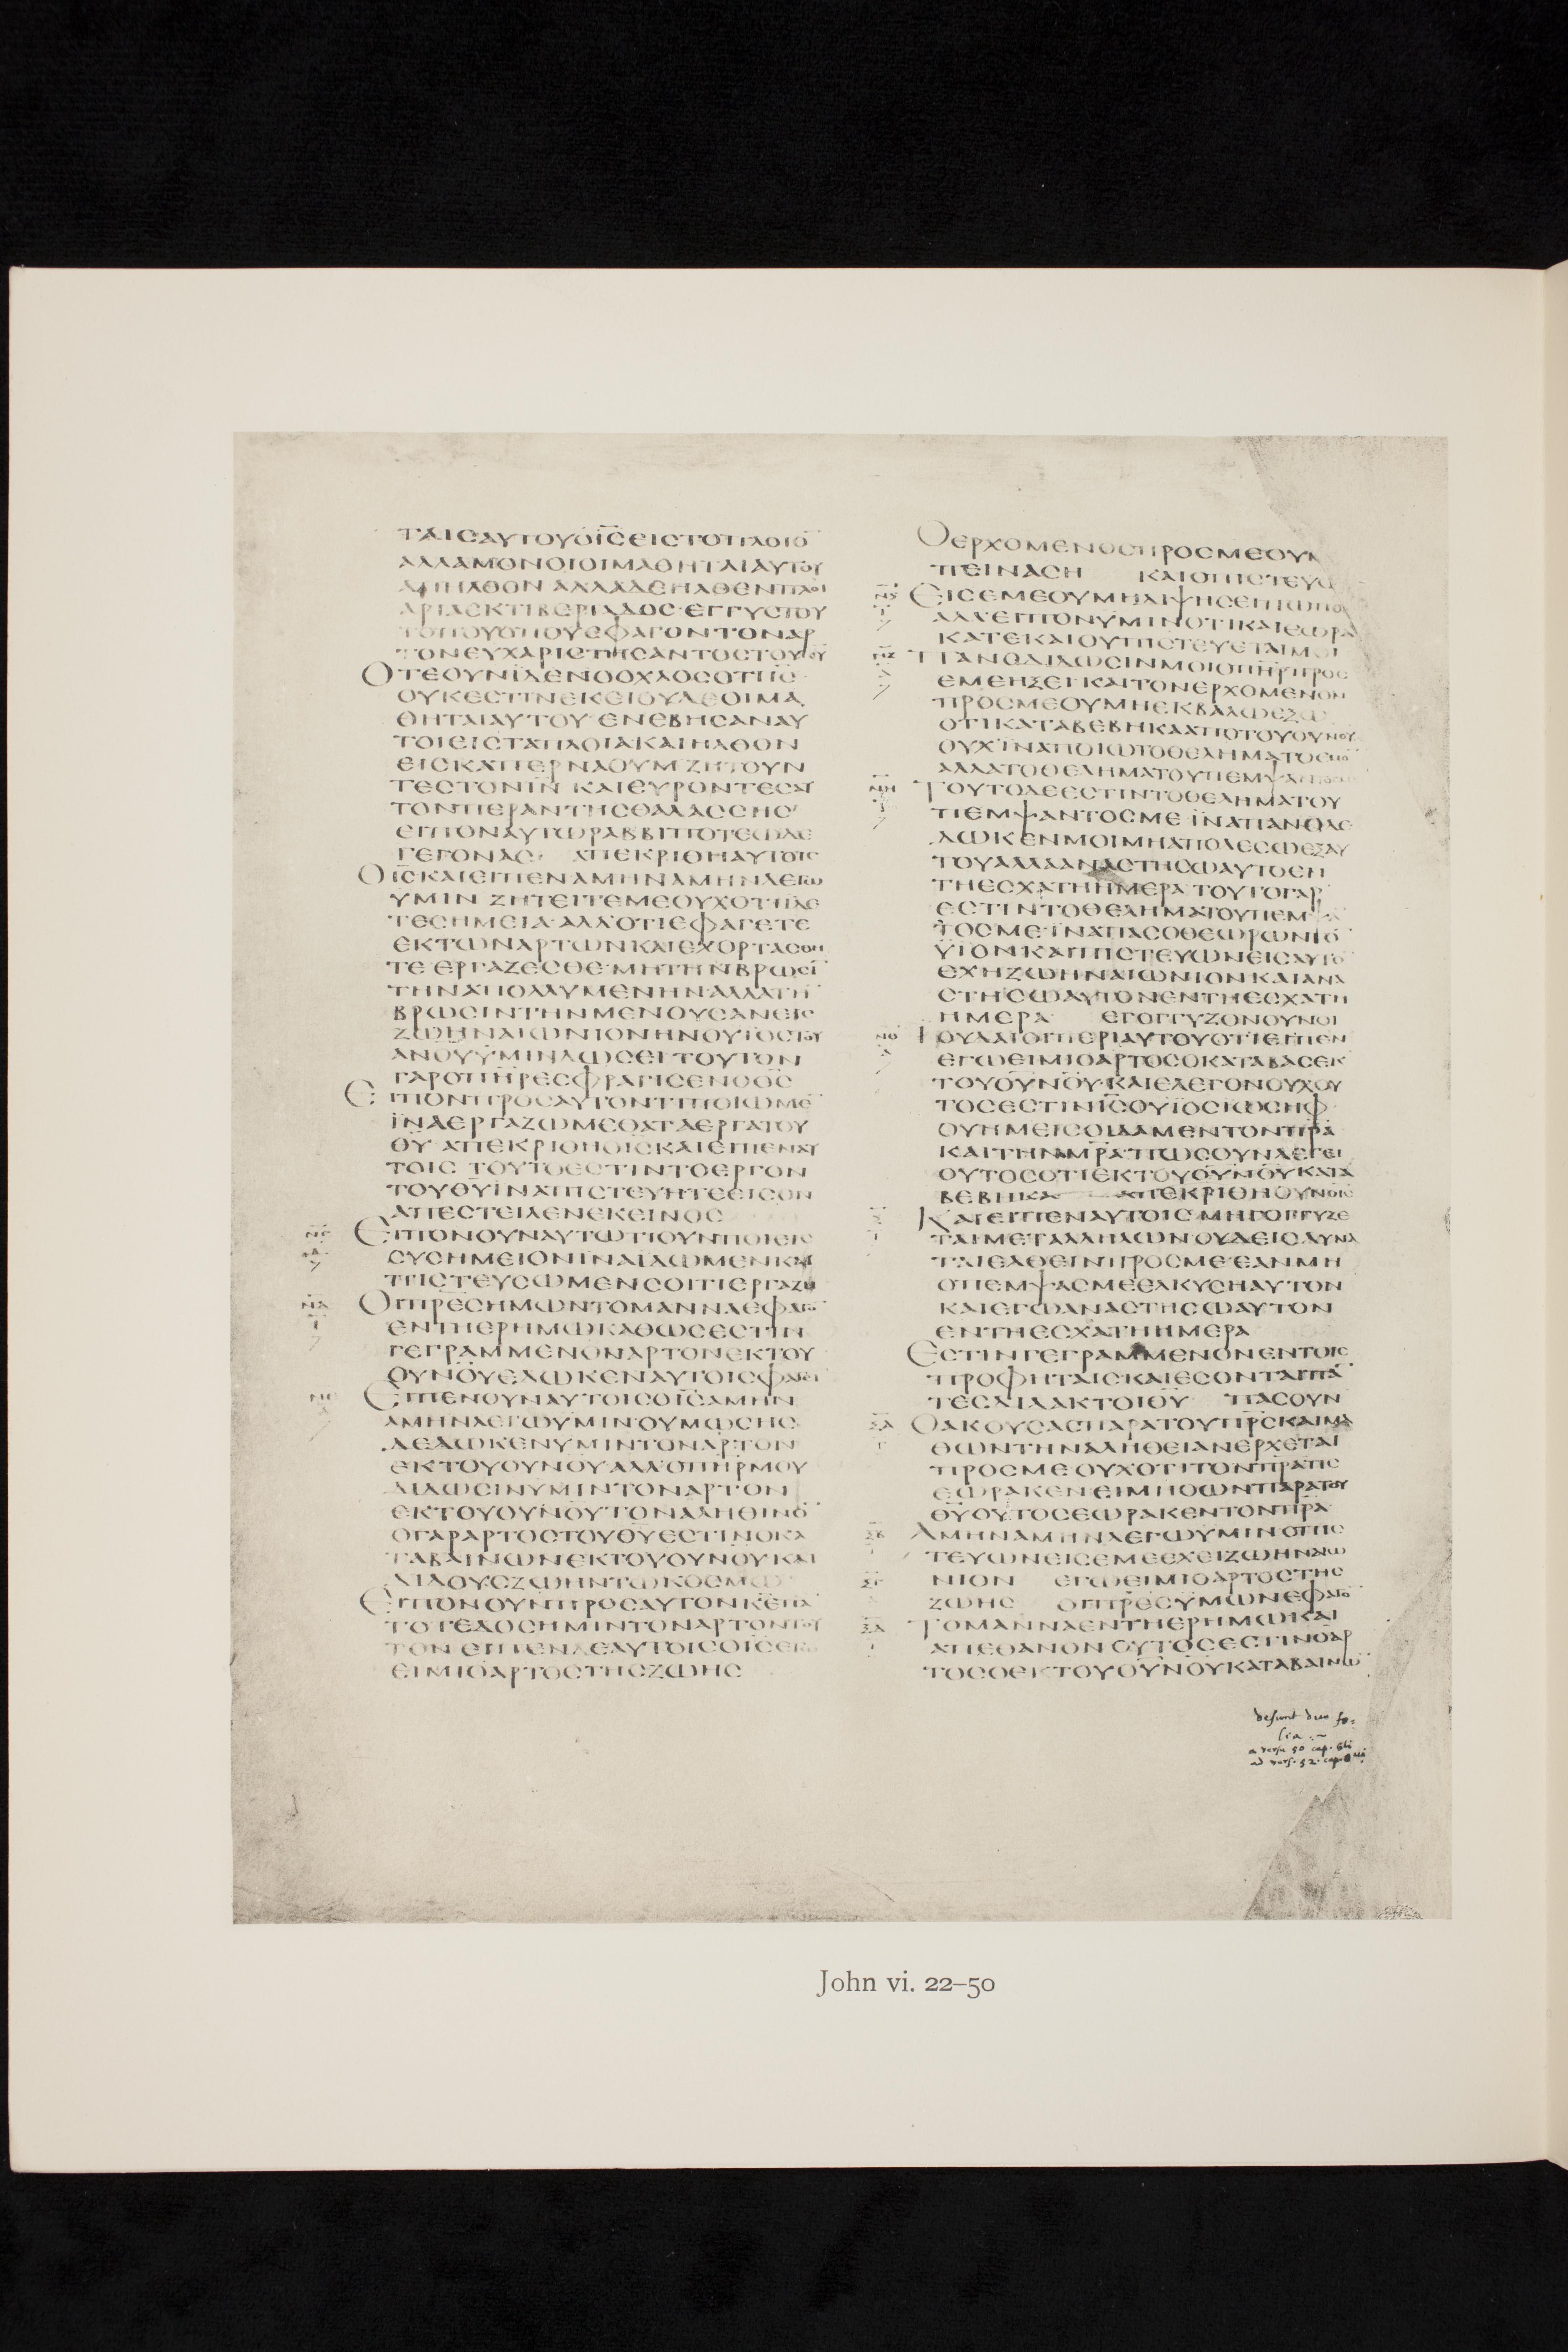 ΤΑΙϹΑΥΤΟΥΟΙ̅Ϲ̅ΕΙϹΤΟΠΛΟΙΟ̅
ΑΛΛΑΜΟΝΟΙΟΙΜΑΘΗΤΑΙΑΥΤΟΥ
ΑΠΗΛΘΟΝ ΑΛΛΑΔΕΗΛΘΕΝΠΛΟΙ
ΑΡΙΑΕΚΤΙΒΕΡΙΑΔΟϹ·ΕΓΓΥϹΤΟΥ
ΤΟΠΟΥΟΠΟΥΕΦΑΓΟΝΤΟΝΑΡ
ΤΟΝΕΥΧΑΡΙϹΤΗϹΑΝΤΟϹΤΟΥΚ̅Υ̅
ΟΤΕΟΥΝΙΔΕΝΟΟΧΛΟϹΟΤΙΙ̅Ϲ̅
ΟΥΚΕϹΤΙΝΕΚΕΙΟΥΔΕΟΙΜΑ
ΘΗΤΑΙΑΥΤΟΥ·ΕΝΕΒΗϹΑΝΑΥ
ΤΟΙΕΙϹΤΑΠΛΟΙΑΚΑΙΗΛΘΟΝ
ΕΙϹΚΑΠΕΡΝΑΟΥΜΖΗΤΟΥΝ
ΤΕϹΤΟΝΙ̅Ν̅ ΚΑΙΕΥΡΟΝΤΕϹΑΥ
ΤΟΝΠΕΡΑΝΤΗϹΘΑΛΑϹϹΗϹ
ΕΙΠΟΝΑΥΤΩΡΑΒΒΙΠΟΤΕΩΔΕ
ΓΕΓΟΝΑϹ· ΑΠΕΚΡΙΘΗΑΥΤΟΙϹ
ΟΙ̅Ϲ̅ΚΑΙΕΙΠΕΝΑΜΗΝΑΜΗΝΛΕΓΩ
ΥΜΙΝ ΖΗΤΕΙΤΕΜΕΟΥΧΟΤΙΙΔΕ
ΤΕϹΗΜΕΙΑ·ΑΛΛΟΤΙΕΦΑΓΕΤΕ
ΕΚΤΩΝΑΡΤΩΝΚΑΙΕΧΟΡΤΑϹΘΗ
ΤΕ ΕΡΓΑΖΕϹΘΕ·ΜΗΤΗΝΒΡΩϹΙ̅
ΤΗΝΑΠΟΛΛΥΜΕΝΗΝΑΛΛΑΤΗ̅
ΒΡΩϹΙΝΤΗΝΜΕΝΟΥϹΑΝΕΙϹ
ΖΩΗΝΑΙΩΝΙΟΝΗΝΟΥΙΟϹΤΟΥ
ΑΝ̅Ο̅Υ̅ΥΜΙΝΔΩϹΕΙ·ΤΟΥΤΟΝ
ΓΑΡΟΠ̅Η̅Ρ̅ΕϹΦΡΑΓΙϹΕΝΟΘ̅Ϲ̅
ΕΙΠΟΝΠΡΟϹΑΥΤΟΝΤΙΠΟΙΩΜΕ̅
ΙΝΑΕΡΓΑΖΩΜΕΘΑΤΑΕΡΓΑΤΟΥ
Θ̅Υ̅ ΑΠΕΚΡΙΘΗΟΙ̅Ϲ̅ΚΑΙΕΙΠΕΝΑΥ
ΤΟΙϹ ΤΟΥΤΟΕϹΤΙΝΤΟΕΡΓΟΝ
ΤΟΥΘ̅Υ̅ΙΝΑΠΙϹΤΕΥΗΤΕΕΙϹΟΝ
ΑΠΕϹΤΕΙΛΕΝΕΚΕΙΝΟϹ
ΕΙΠΟΝΟΥΝΑΥΤΩΤΙΟΥΝΠΟΙΕΙϹ
ϹΥϹΗΜΕΙΟΝΙΝΑΙΔΩΜΕΝΚΑΙ
ΠΙϹΤΕΥϹΩΜΕΝϹΟΙΤΙΕΡΓΑΖΗ
ΟΙΠ̅Ρ̅Ε̅Ϲ̅ΗΜΩΝΤΟΜΑΝΝΑΕΦΑΓΟ̅
ΕΝΤΗΕΡΗΜΩΚΑΘΩϹΕϹΤΙΝ
ΓΕΓΡΑΜΜΕΝΟΝΑΡΤΟΝΕΚΤΟΥ
Ο̅Υ̅Ν̅Ο̅Υ̅ΕΔΩΚΕΝΑΥΤΟΙϹΦΑΓΕΙ
ΕΙΠΕΝΟΥΝΑΥΤΟΙϹΟΙ̅Ϲ̅ΑΜΗΝ
ΑΜΗΝΛΕΓΩΥΜΙΝΟΥΜΩϹΗϹ
ΔΕΔΩΚΕΝΥΜΙΝΤΟΝΑΡΤΟΝ
ΕΚΤΟΥΟΥΝΟΥΑΛΛΟΠ̅Η̅Ρ̅ΜΟΥ
ΔΙΔΩϹΙΝΥΜΙΝΤΟΝΑΡΤΟΝ
ΕΚΤΟΥΟΥΝΟΥΤΟΝΑΛΗΘΙΝΟ̅
ΟΓΑΡΑΡΤΟϹΤΟΥΘ̅Υ̅ΕϹΤΙΝΟΚΑ
ΤΑΒΑΙΝΩΝΕΚΤΟΥΟΥΝΟΥΚΑΙ
ΔΙΔΟΥϹΖΩΗΝΤΩΚΟϹΜΩ
ΕΙΠΟΝΟΥΝΠΡΟϹΑΥΤΟΝΚ̅Ε̅ΠΑ̅
ΤΟΤΕΔΟϹΗΜΙΝΤΟΝΑΡΤΟΝΤΟΥ
ΤΟΝ ΕΙΠΕΝΔΕΑΥΤΟΙϹΟΙ̅Ϲ̅ΕΓΩ
ΕΙΜΙΟΑΡΤΟϹΤΗϹΖΩΗϹ
ΟΕΡΧΟΜΕΝΟϹΠΡΟϹΜΕΟΥΜ
ΠΕΙΝΑϹΗ ΚΑΙΟΠΙϹΤΕΥΩ
ΕΙϹΕΜΕΟΥΜΗΔΙΨΗϹΕΙΠΩΠΟ
ΑΛΛΕΙΠΟΝΥΜΙΝΟΤΙΚΑΙΕΩΡΑ
ΚΑΤΕΚΑΙΟΥΠΙϹΤΕΥΕΤΑΙΜΟΙ
ΠΑΝΟΔΙΔΩϹΙΝΜΟΙΟΠ̅Η̅Ρ̅ΠΡΟϹ
ΕΜΕΗΞΕΙΚΑΙΤΟΝΕΡΧΟΜΕΝΟΝ
ΠΡΟϹΜΕΟΥΜΗΕΚΒΑΛΩΕΞΩ
ΟΤΙΚΑΤΑΒΕΒΗΚΑΑΠΟΤΟΥΟΥΝΟΥ
ΟΥΧΙΝΑΠΟΙΩΤΟΘΕΛΗΜΑΤΟΕΜΟ̅
ΑΛΛΑΤΟΘΕΛΗΜΑΤΟΥΠΕΜΨΑΝΤΟϹ
ΤΟΥΤΟΔΕΕϹΤΙΝΤΟΘΕΛΗΜΑΤΟΥ
ΠΕΜΨΑΝΤΟϹΜΕ ΙΝΑΠΑΝΟΔΕ
ΔΩΚΕΝΜΟΙΜΗΑΠΟΛΕϹΩΕΞΑΥ
ΤΟΥΑΛΛΑΑΝΑϹΤΗϹΩΑΥΤΟΕΝ
ΤΗΕϹΧΑΤΗΗΜΕΡΑ ΤΟΥΤΟΓΑΡ
ΕϹΤΙΝΤΟΘΕΛΗΜΑΤΟΥΠΕΜΨΑ
ΤΟϹΜΕ·ΙΝΑΠΑϹΟΘΕΩΡΩΝΤΟ̅
ΥΙΟΝΚΑΙΠΙϹΤΕΥΩΝΕΙϹΑΥΤΟ̅
ΕΧΗΖΩΗΝΑΙΩΝΙΟΝΚΑΙΑΝΑ
ϹΤΗϹΩΑΥΤΟΝΕΝΤΗΕϹΧΑΤΗ
ΗΜΕΡΑ ΕΓΟΓΓΥΖΟΝΟΥΝΟΙ
ΙΟΥΔΑΙΟΙΠΕΡΙΑΥΤΟΥΟΤΙΕΙΠΕΝ
ΕΓΩΕΙΜΙΟΑΡΤΟϹΟΚΑΤΑΒΑϹΕΚ
ΤΟΥΟΥΝΟΥ·ΚΑΙΕΛΕΓΟΝΟΥΧΟΥ
ΤΟϹΕϹΤΙΝΙ̅Ϲ̅ΟΥΙΟϹΙΩϹΗΦ
ΟΥΗΜΕΙϹΟΙΔΑΜΕΝΤΟΝΠ̅Ρ̅Α̅
ΚΑΙΤΗΝΜ̅Ρ̅Α̅ΠΩϹΟΥΝΛΕΓΕΙ
ΟΥΤΟϹΟΤΙΕΚΤΟΥΟΥΝΟΥΚΑΤΑ
ΒΕΒΗΚΑ ΑΠΕΚΡΙΘΗΟΥΝΟΙ̅Ϲ̅
ΚΑΙΕΙΠΕΝΑΥΤΟΙϹ·ΜΗΓΟΓΓΥΖΕ
ΤΑΙΜΕΤΑΛΛΗΛΩΝΟΥΔΕΙϹΔΥΝΑ
ΤΑΙΕΛΘΕΙΝΠΡΟϹΜΕ·ΕΑΝΜΗ
ΟΠΕΜΨΑϹΜΕΕΛΚΥϹΗΑΥΤΟΝ
ΚΑΙΕΓΩΑΝΑϹΤΗϹΩΑΥΤΟΝ
ΕΝΤΗΕϹΧΑΤΗΗΜΕΡΑ
ΕϹΤΙΝΓΕΓΡΑΜΜΕΝΟΝΕΝΤΟΙϹ
ΠΡΟΦΗΤΑΙϹΚΑΙΕϹΟΝΤΑΙΠΑ̅
ΤΕϹΔΙΔΑΚΤΟΙΘ̅Υ̅ ΠΑϹΟΥΝ
ΟΑΚΟΥϹΑϹΠΑΡΑΤΟΥΠ̅Ρ̅Ϲ̅ΚΑΙΜΑ
ΘΩΝΤΗΝΑΛΗΘΕΙΑΝΕΡΧΕΤΑΙ
ΠΡΟϹΜΕ ΟΥΧΟΤΙΤΟΝΠ̅Ρ̅Α̅ΤΙϹ
ΕΩΡΑΚΕΝΕΙΜΗΟΩΝΠΑΡΑΤΟΥ
Θ̅Υ̅ΟΥΤΟϹΕΩΡΑΚΕΝΤΟΝΠ̅Ρ̅Α̅
ΑΜΗΝΑΜΗΝΛΕΓΩΥΜΙΝΟΠΙϹ
ΤΕΥΩΝΕΙϹΕΜΕΕΧΕΙΖΩΗΝΑΙΩ
ΝΙΟΝ ΕΓΩΕΙΜΙΟΑΡΤΟϹΤΗϹ
ΖΩΗϹ ΟΙΠ̅Ρ̅Ε̅Ϲ̅ΥΜΩΝΕΦΑΓΟ̅
ΤΟΜΑΝΝΑΕΝΤΗΕΡΗΜΩΚΑΙ
ΑΠΕΘΑΝΟΝ ΟΥΤΟϹΕϹΤΙΝΟΑΡ
ΤΟϹΟΕΚΤΟΥΟΥΝΟΥΚΑΤΑΒΑΙΝΩ̅
desunt duo fo-
lia
a versu 50 cap. 6ti
ad vers. 52. cap. 8vi
John vi. 22–50